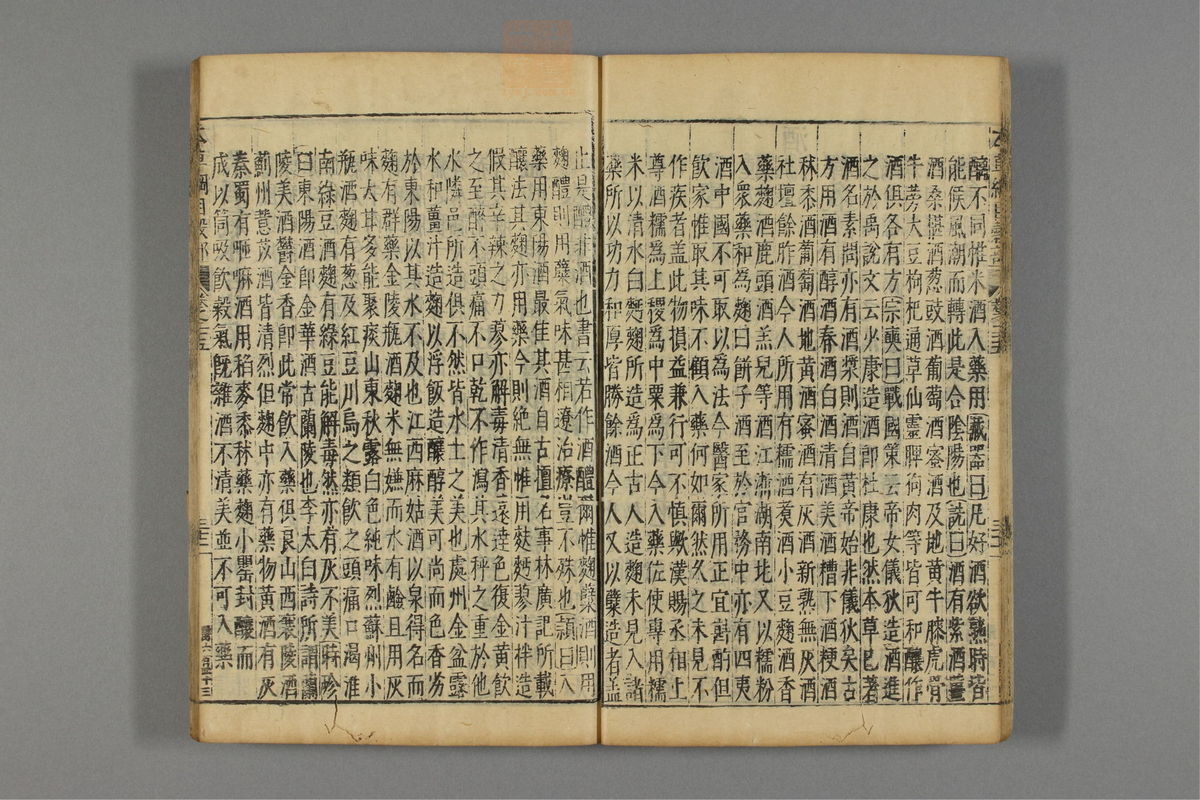 醸不同惟米酒入藥用藏器曰凡好酒欲熟時皆
能候風潮而轉此是合陰陽也詵曰酒有紫酒薑
酒桑椹酒葱豉酒葡萄酒蜜酒及地黃牛膝虎骨
牛蒡大豆枸杞通草仙靈脾狗肉等皆可和釀作
酒俱各有方宗奭曰戰國策云帝女儀狄造酒進
之於禹說文云少康造酒即杜康也然本草已著
酒名素問亦有酒漿則酒自黃帝始非儀狄矣古
方用酒有醇酒春酒白酒清酒美酒糟下酒粳酒
秫黍酒葡萄酒地黃酒蜜酒有灰酒新熟無灰酒
社壇餘胙酒今人所用有糯酒煑酒小豆麴酒香
藥麴酒鹿頭酒羔兒等酒江浙湖南北又以糯粉
入衆藥和為麴曰餅子酒至於官務中亦有四夷
酒中國不可取以為法今醫家所用正宜斟酌但
飲家惟取其味不顧入藥何如爾然久之未見不
作疾者盖此物損益兼行可不慎歟漢賜丞相上
尊酒糯為上稷為中粟為下今入藥佐使專用糯
米以清水白麪麴所造為正古人造麴未見入諸
藥所以功力和厚皆勝餘酒今人又以糵造者盖
止是醴非酒也書云若作酒醴爾惟麴糵酒則用
麴醴則用糵氣味甚相遼治療豈不殊也頴曰入
藥用東陽酒最佳其酒自古擅名事林廣記所載
釀法其麴亦用藥今則絶無惟用麩麪蓼汁拌造
假其辛辣之力蓼亦解毒清香遠達色復金黃飲
之至醉不頭痛不口乾不作瀉其水秤之重於他
水隣邑所造俱不然皆水土之美也處州金盆露
水和薑汁造麴以浮飯造釀醇美可尚而色香劣
於東陽以其水不及也江西麻姑酒以泉得名而
麴有群藥金陵瓶酒麴米無嫌而水有鹼且用灰
味太甘多能聚痰山東秋露白色純味烈蘇州小
瓶酒麴有葱及紅豆川烏之類飲之頭痛口渴淮
南綠豆酒麴有綠豆能解毒然亦有灰不美時珍
曰東陽酒即金華酒古蘭陵也李太白詩所謂蘭
陵美酒鬱金香即此常飲入藥俱良山西襄陵酒
薊州薏苡酒皆清烈但麴中亦有藥物黃酒有灰
秦蜀有咂嘛酒用稻麥黍秫藥麴小罌封釀而
成以筒吸飲穀氣旣雜酒不清美並不可入藥